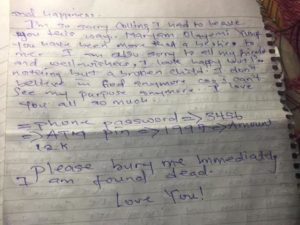 and happiness.
I'm so sorry Calling I had to leave
you this way. Maryam Olayemi
You have been more than a brother to
me. I am also sorry to all my friends
and wellwishers, I look happy but I'm
nothing but a broken child. I don't
believe in God anymore cos I don't
see my purpose anymore. I love
You all so much.
=> Phone password => 3456
=> ATM pin => 1999 => Amount
12.k
Please bury me immediately
I am found dead.
Love You!